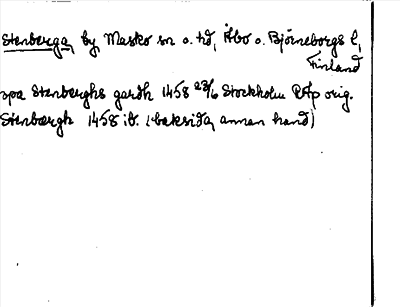 Stenberga, by, Masko sn o. hd, Åbo o. Björneborgs l,
Finland
opa Stenberghs gardh 1458 23/6 Stockholm RAp orig.
Stenbærgh 1458 ib. (baksida, annan hand)